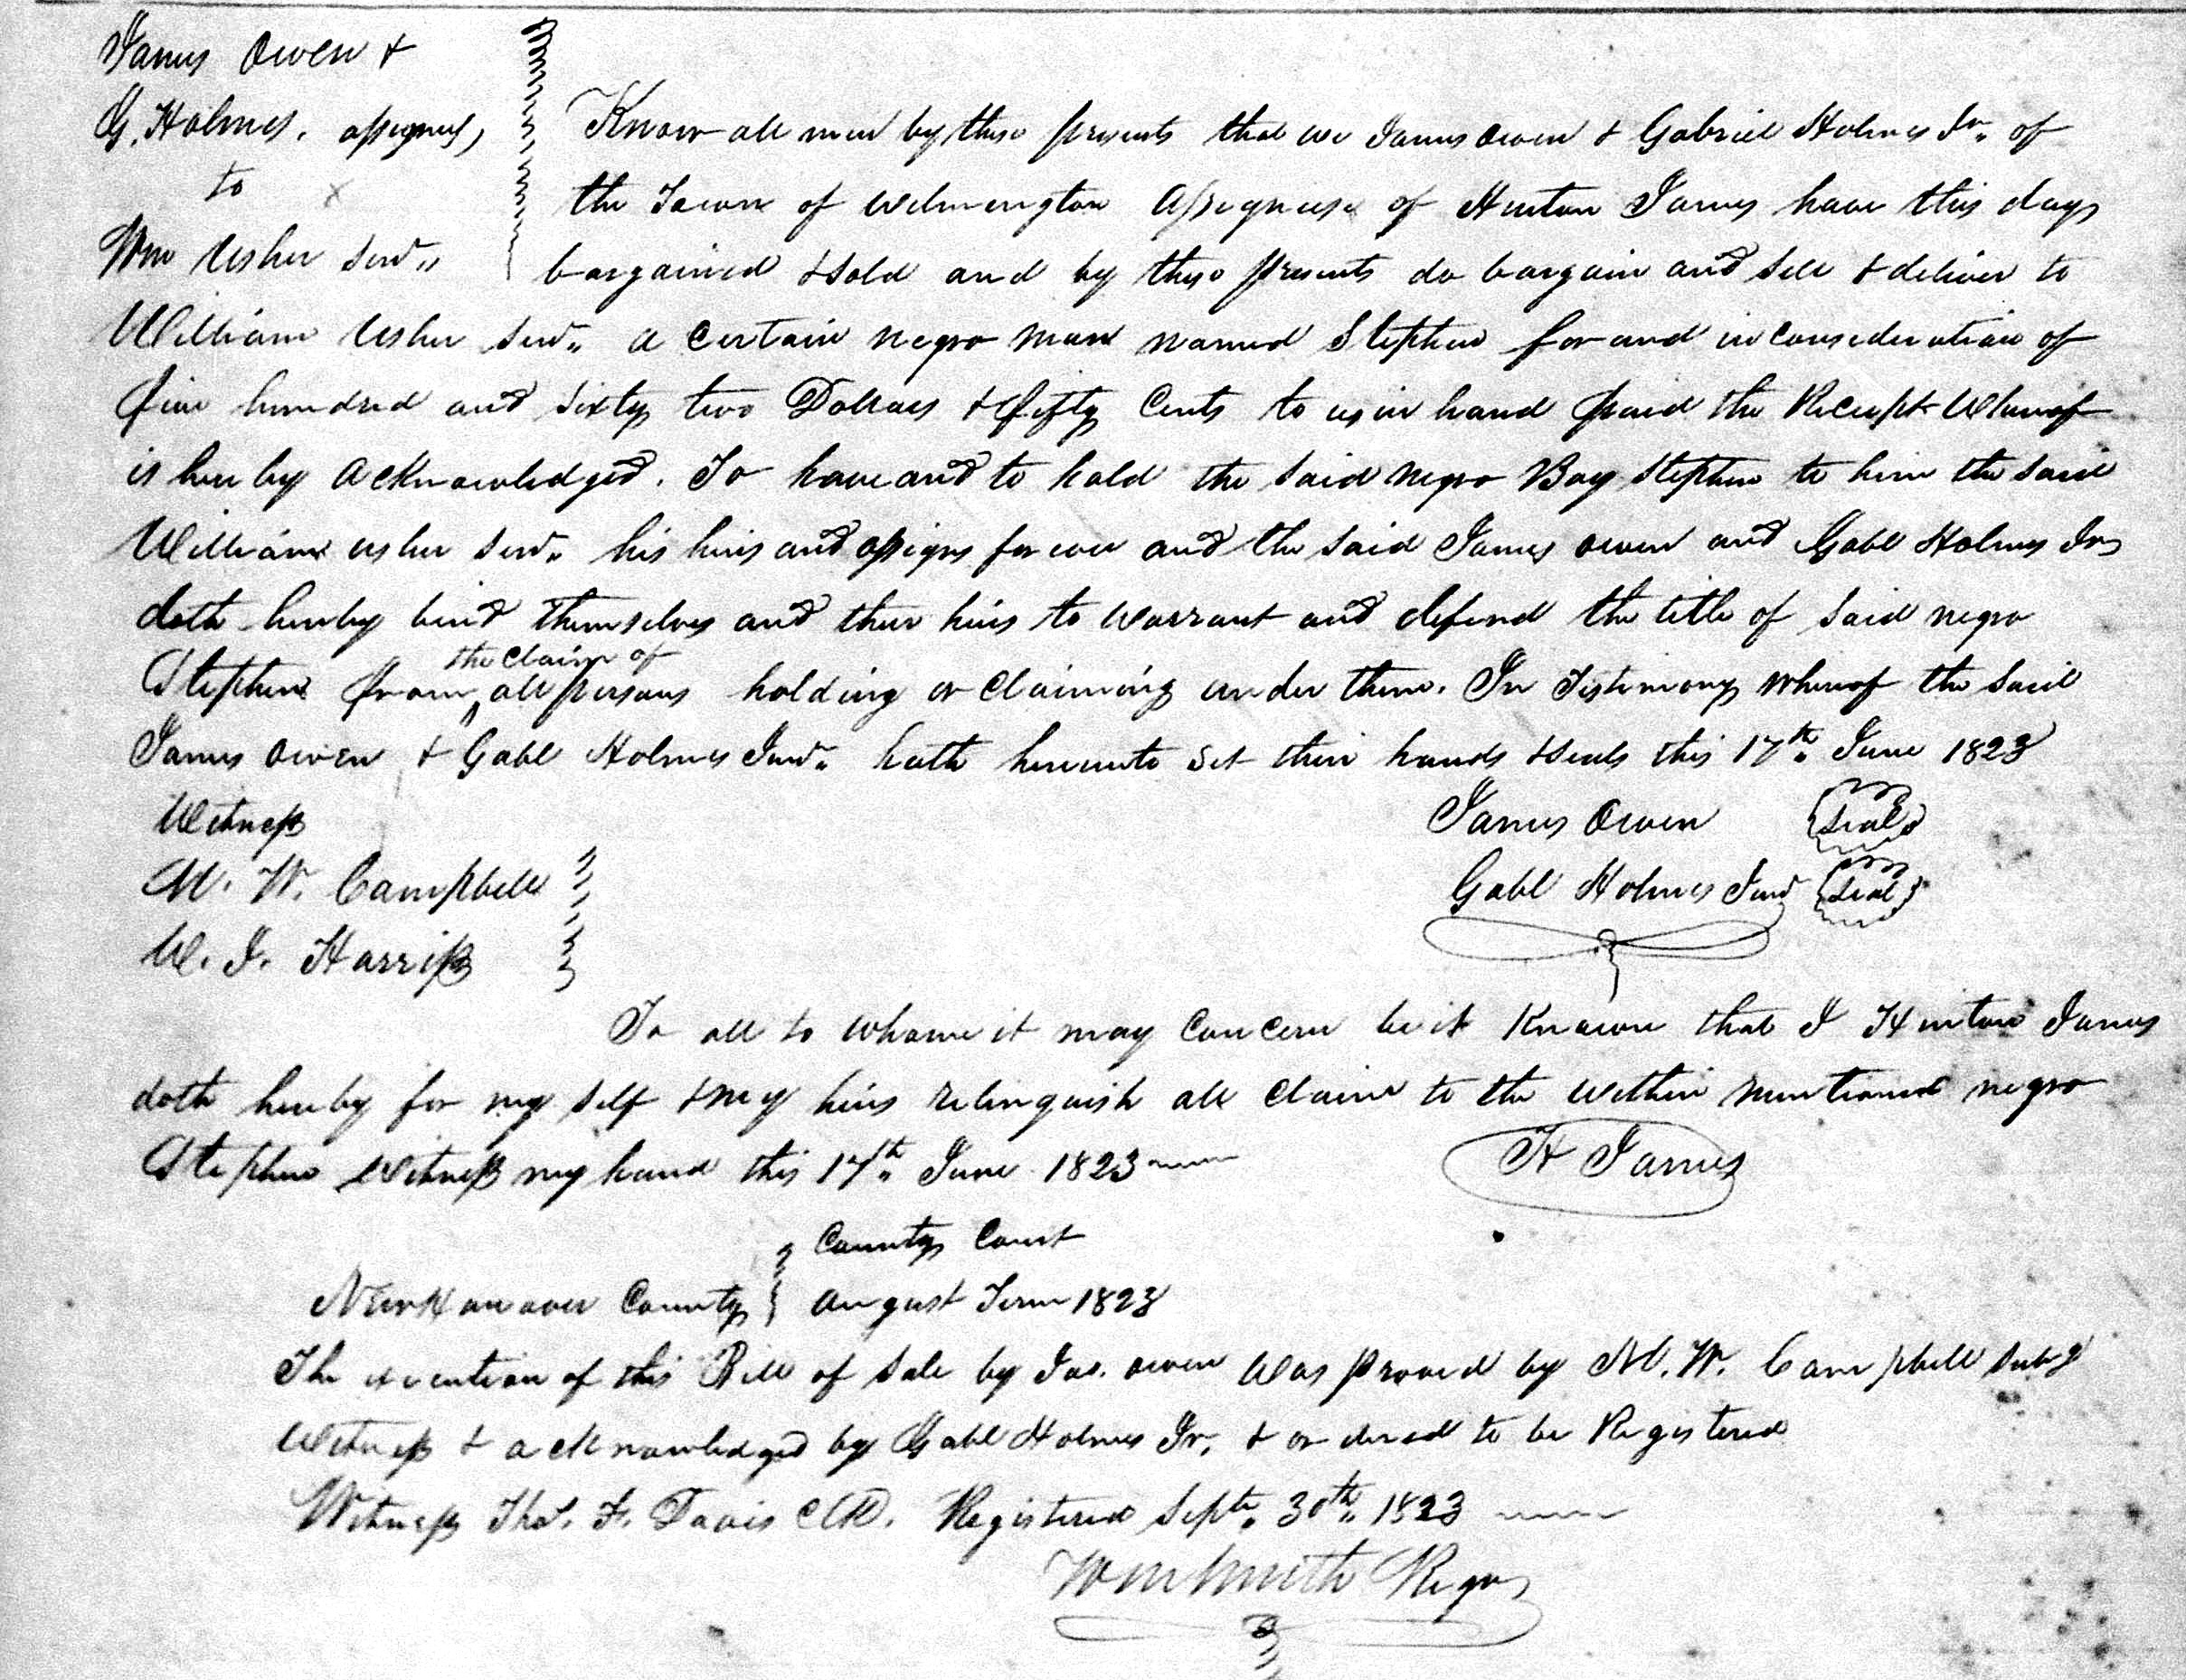 James Owen &
G. Holmes, assignees,
to
Wm Usher Senr.
Know all men by these presents that we James Owen & Gabriel Holmes Jr. of
the Town of Wilmington Assignees of Hinton James have this day
bargained & sold and by these presents do bargain and sell & deliver to
William Usher Senr. a certain negro man named Stephen for and in consideration of
five hundred and sixty two Dollars & fifty Cents to us in hand paid the Receipt Whereof
is hereby acknowledged. To have and to hold the said negro Boy Stephen to him the said
William usher Senr. his heirs and assigns forever and the said James owen and Gabl Holmes Jr
doth hereby bind themselves and their heirs to warrant and defend the title of said negro
Stephen from the claim of all persons holding or claiming under them. In Testimony whereof the said
James Owen & Gabl Holmes Junr. hath hereunto set their hands & seals this 17th. June 1823
Witness
James Owen Seal
M. W. Campbell
Gabl Holmes Junr Seal
W. J. Harriss
To all to whome it may Concern be it Known that I Hinton James
doth hereby for my self & my heirs relinquish all claim to the within mentioned negro
Stephen Witness my hand this 17th. June 1823
H James
County Court
New Hanover County August Term 1823
The execution of this Bill of Sale by Jas. owen Was proved by M. W. Campbell subg
Witness & acknowledged by Gabl Holmes Jr. & ordered to be Registered
Witness Thos. F. Davis Clk. Registered Septr. 30th. 1823
Wm Smith Regr